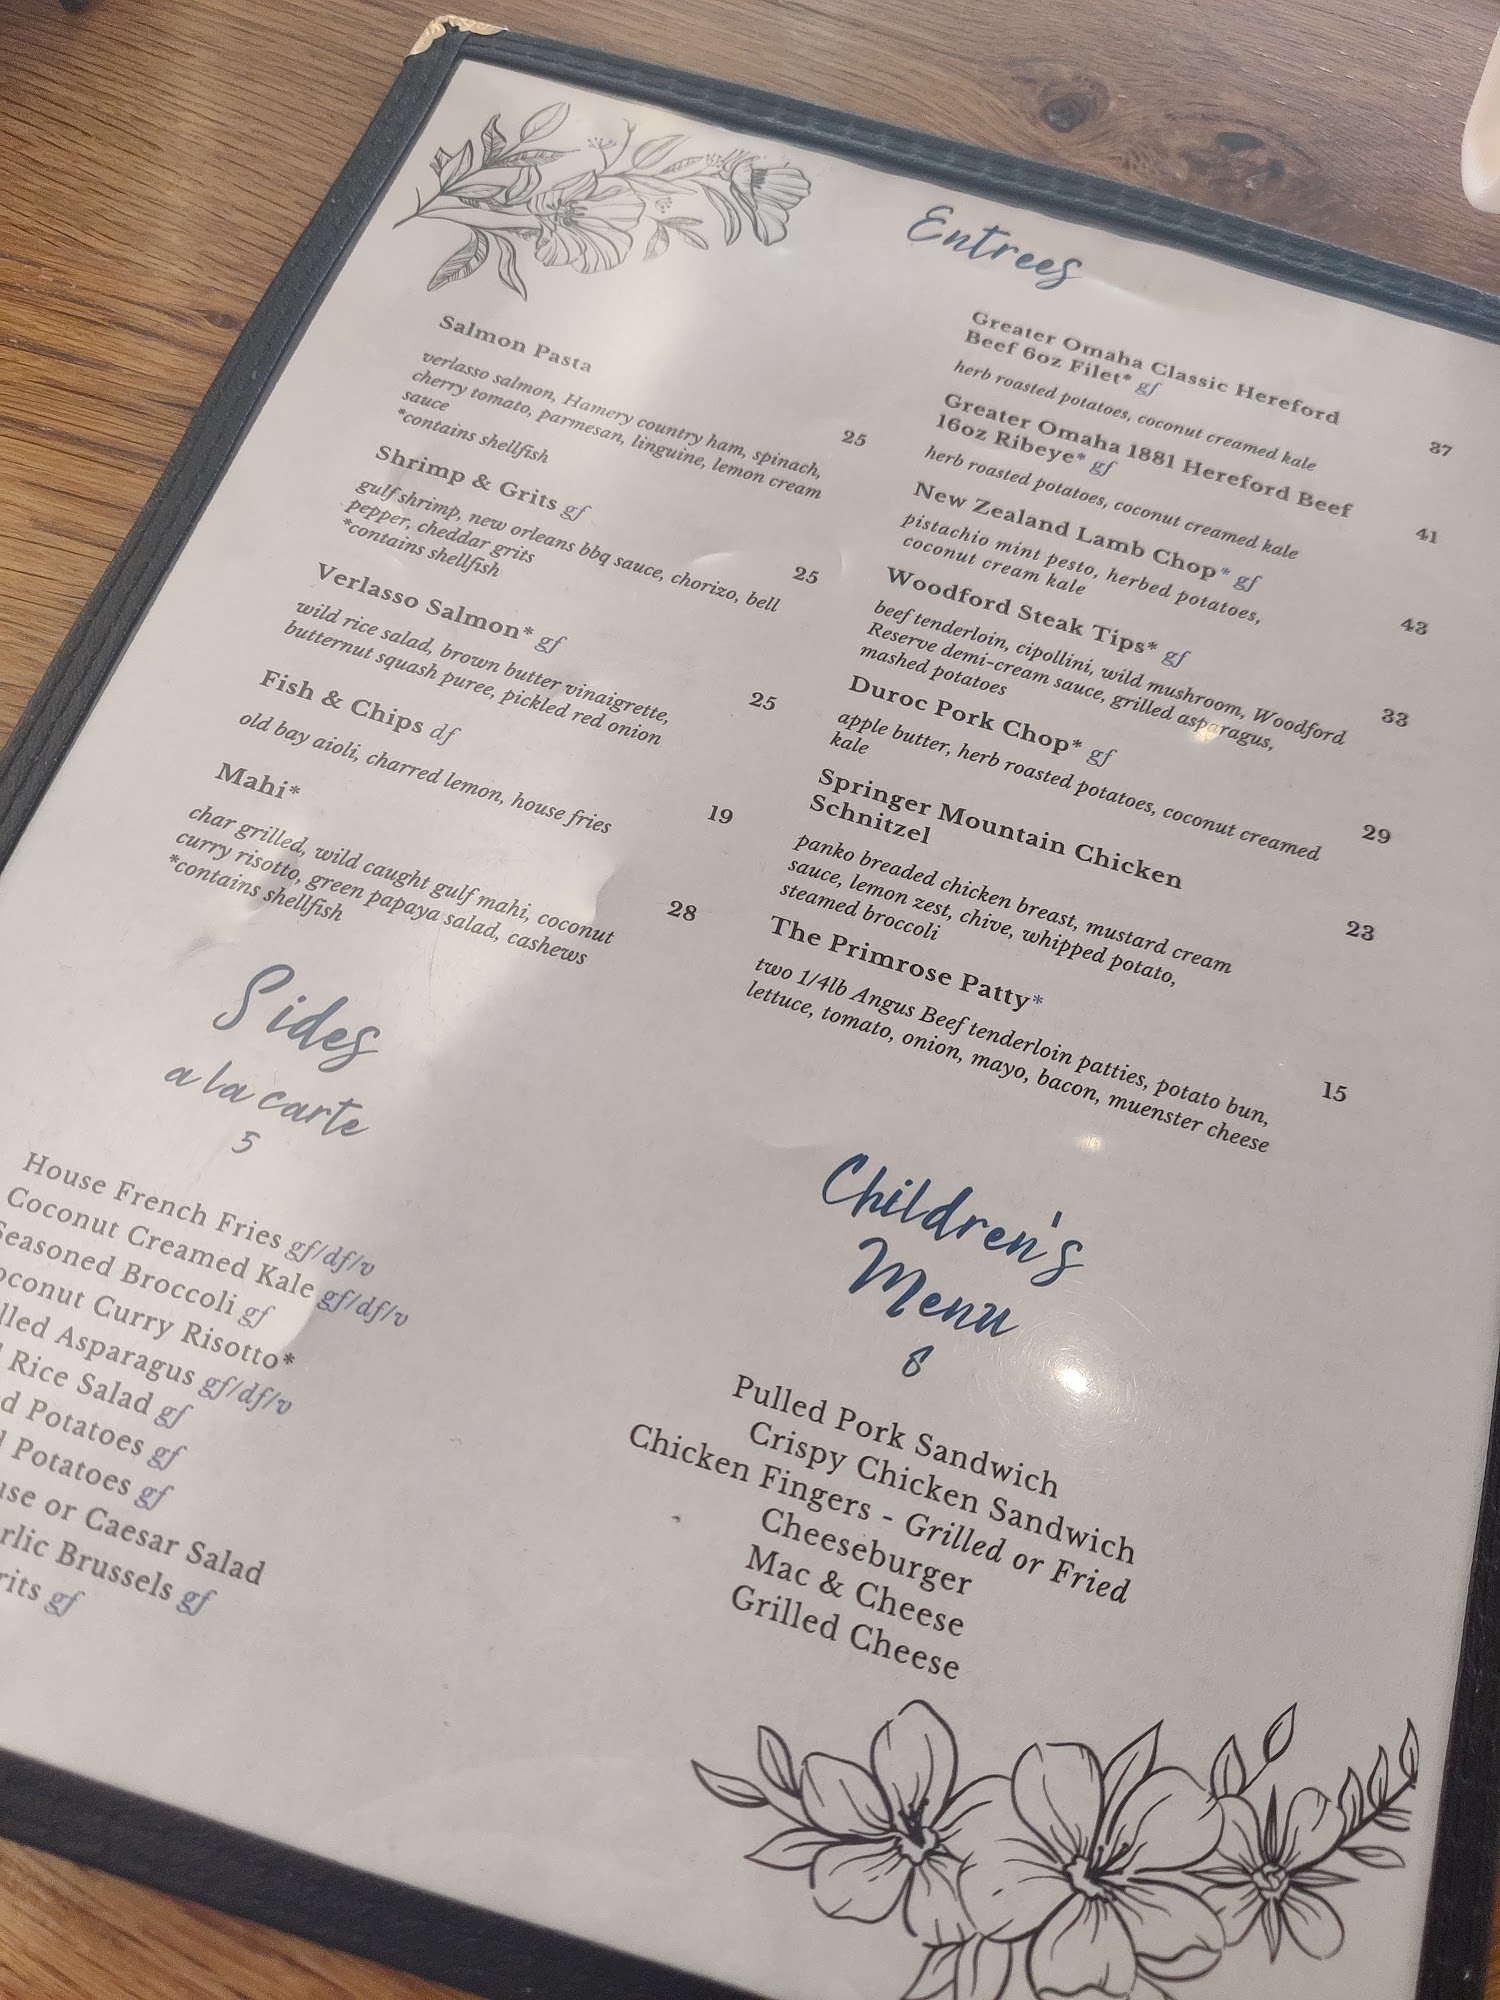 Entrees
Salmon Pasta
verlasso salmon, Hamery country ham, spinach,
cherry tomato, parmesan, linguine, lemon cream
sauce
*contains shellfish
25
Shrimp & Grits gf
gulf shrimp, new orleans bbq sauce, chorizo, bell
pepper, cheddar grits
*contains shellfish
25
Verlasso Salmon* gf
wild rice salad, brown butter vinaigrette,
butternut squash puree, pickled red onion
25
Fish & Chips df
old bay aioli, charred lemon, house fries
19
Mahi*
char grilled, wild caught gulf mahi, coconut
curry risotto, green papaya salad, cashews
*contains shellfish
28
Greater Omaha Classic Hereford
Beef 6oz Filet* gf
herb roasted potatoes, coconut creamed kale
37
Greater Omaha 1881 Hereford Beef
16oz Ribeye* gf
herb roasted potatoes, coconut creamed kale
41
New Zealand Lamb Chop* gf
pistachio mint pesto, herbed potatoes,
coconut cream kale
43
Woodford Steak Tips* gf
beef tenderloin, cipollini, wild mushroom, Woodford
Reserve demi-cream sauce, grilled asparagus,
mashed potatoes
33
Duroc Pork Chop* gf
apple butter, herb roasted potatoes, coconut creamed
kale
29
Springer Mountain Chicken
Schnitzel
panko breaded chicken breast, mustard cream
sauce, lemon zest, chive, whipped potato,
steamed broccoli
23
The Primrose Patty*
two 1/4lb Angus Beef tenderloin patties, potato bun,
lettuce, tomato, onion, mayo, bacon, muenster cheese
15
Sides
a la carte
5
House French Fries gf/df/v
Coconut Creamed Kale gf/df/v
Seasoned Broccoli gf
Curry Risotto*
Asparagus gf/df/v
Rice Salad gf
Potatoes gf
Potatoes gf
or Caesar Salad
Brussels gf
gf
Children's
Menu
8
Pulled Pork Sandwich
Crispy Chicken Sandwich
Chicken Fingers - Grilled or Fried
Cheeseburger
Mac & Cheese
Grilled Cheese